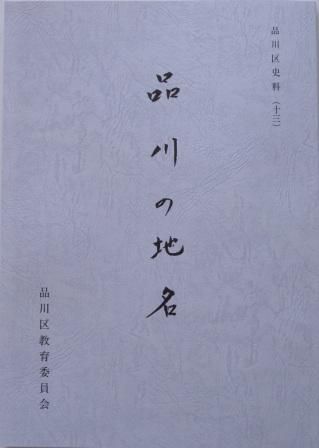 品川区史料(十三)
品川の地名
品川区教育委員会